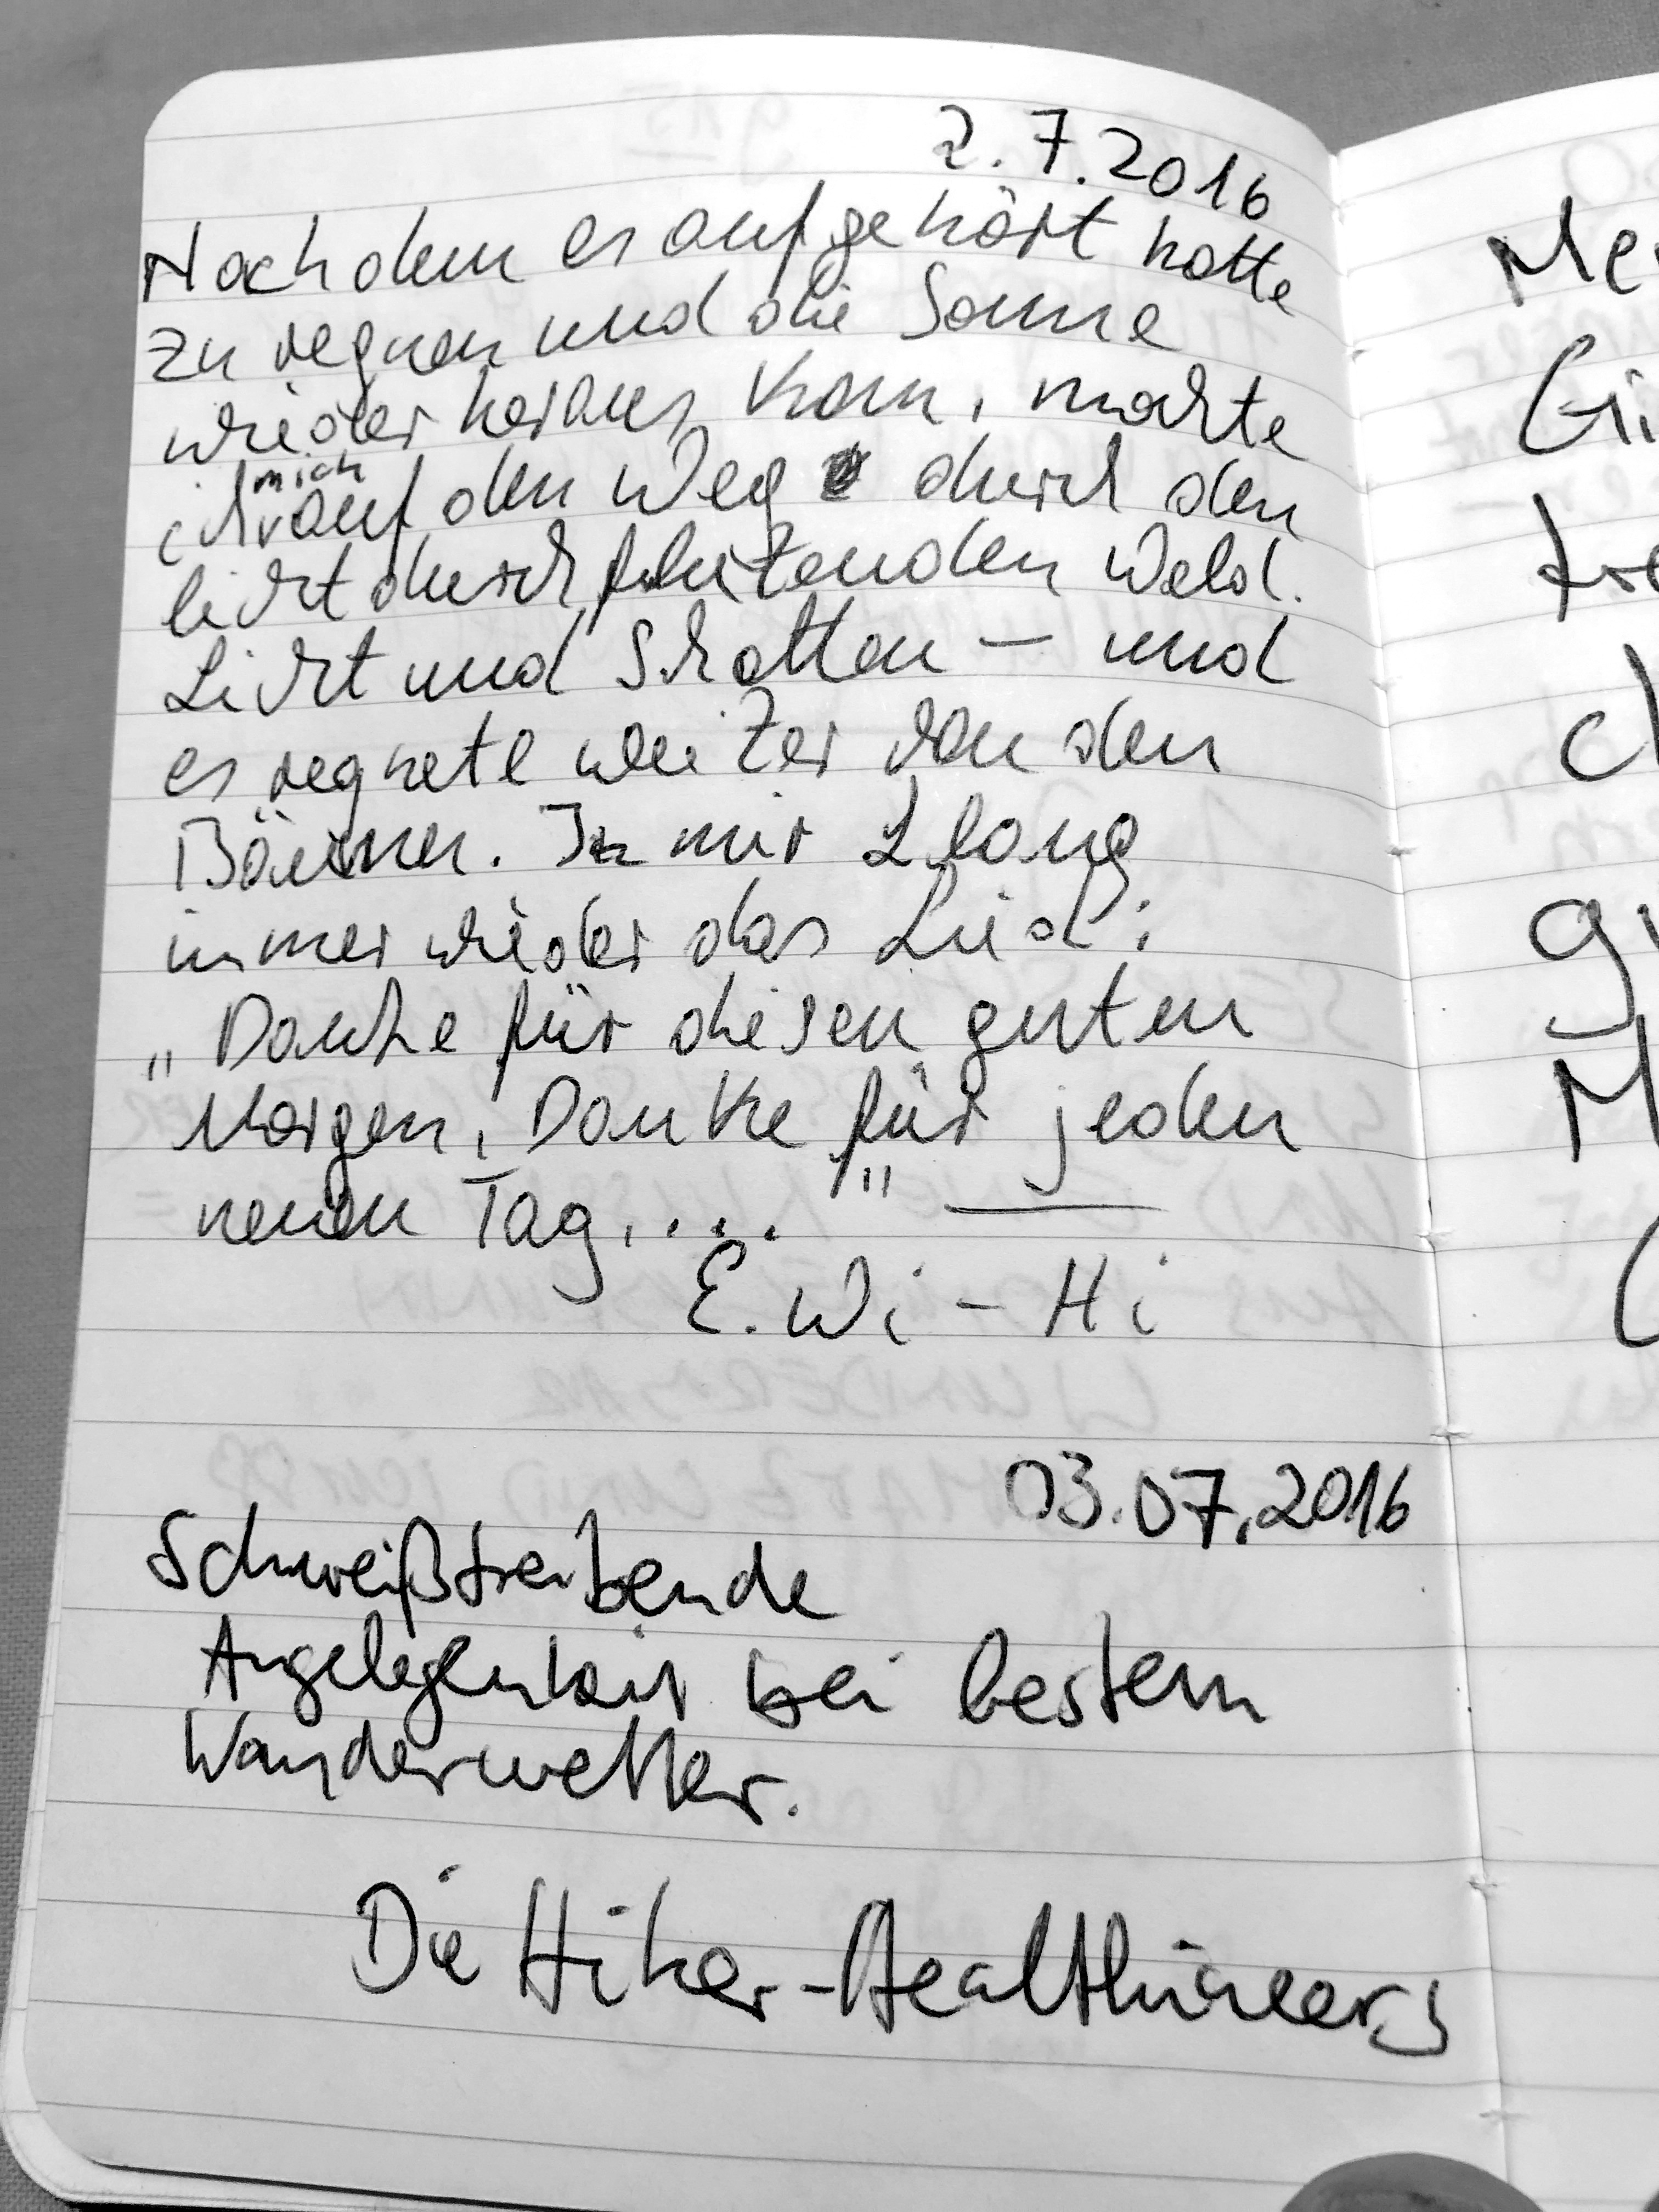 2.7.2016
Nachdem es aufgehört hatte
zu regnen und die Sonne
wieder heraus kam, machte
ich mich auf den Weg durch den
lichtdurchflutenden Wald.
Licht und Schatten – und
es regnete weiter von den
Bäumen. In mir klang
immer wieder das Lied:
„Danke für diesen guten
Morgen, Danke für jeden
neuen Tag, ...."
E. Wi – Hi
03.07.2016
Schweißtreibende
Angelegenheit bei bestem
Wanderwetter.
Die Hiker-Healthineers